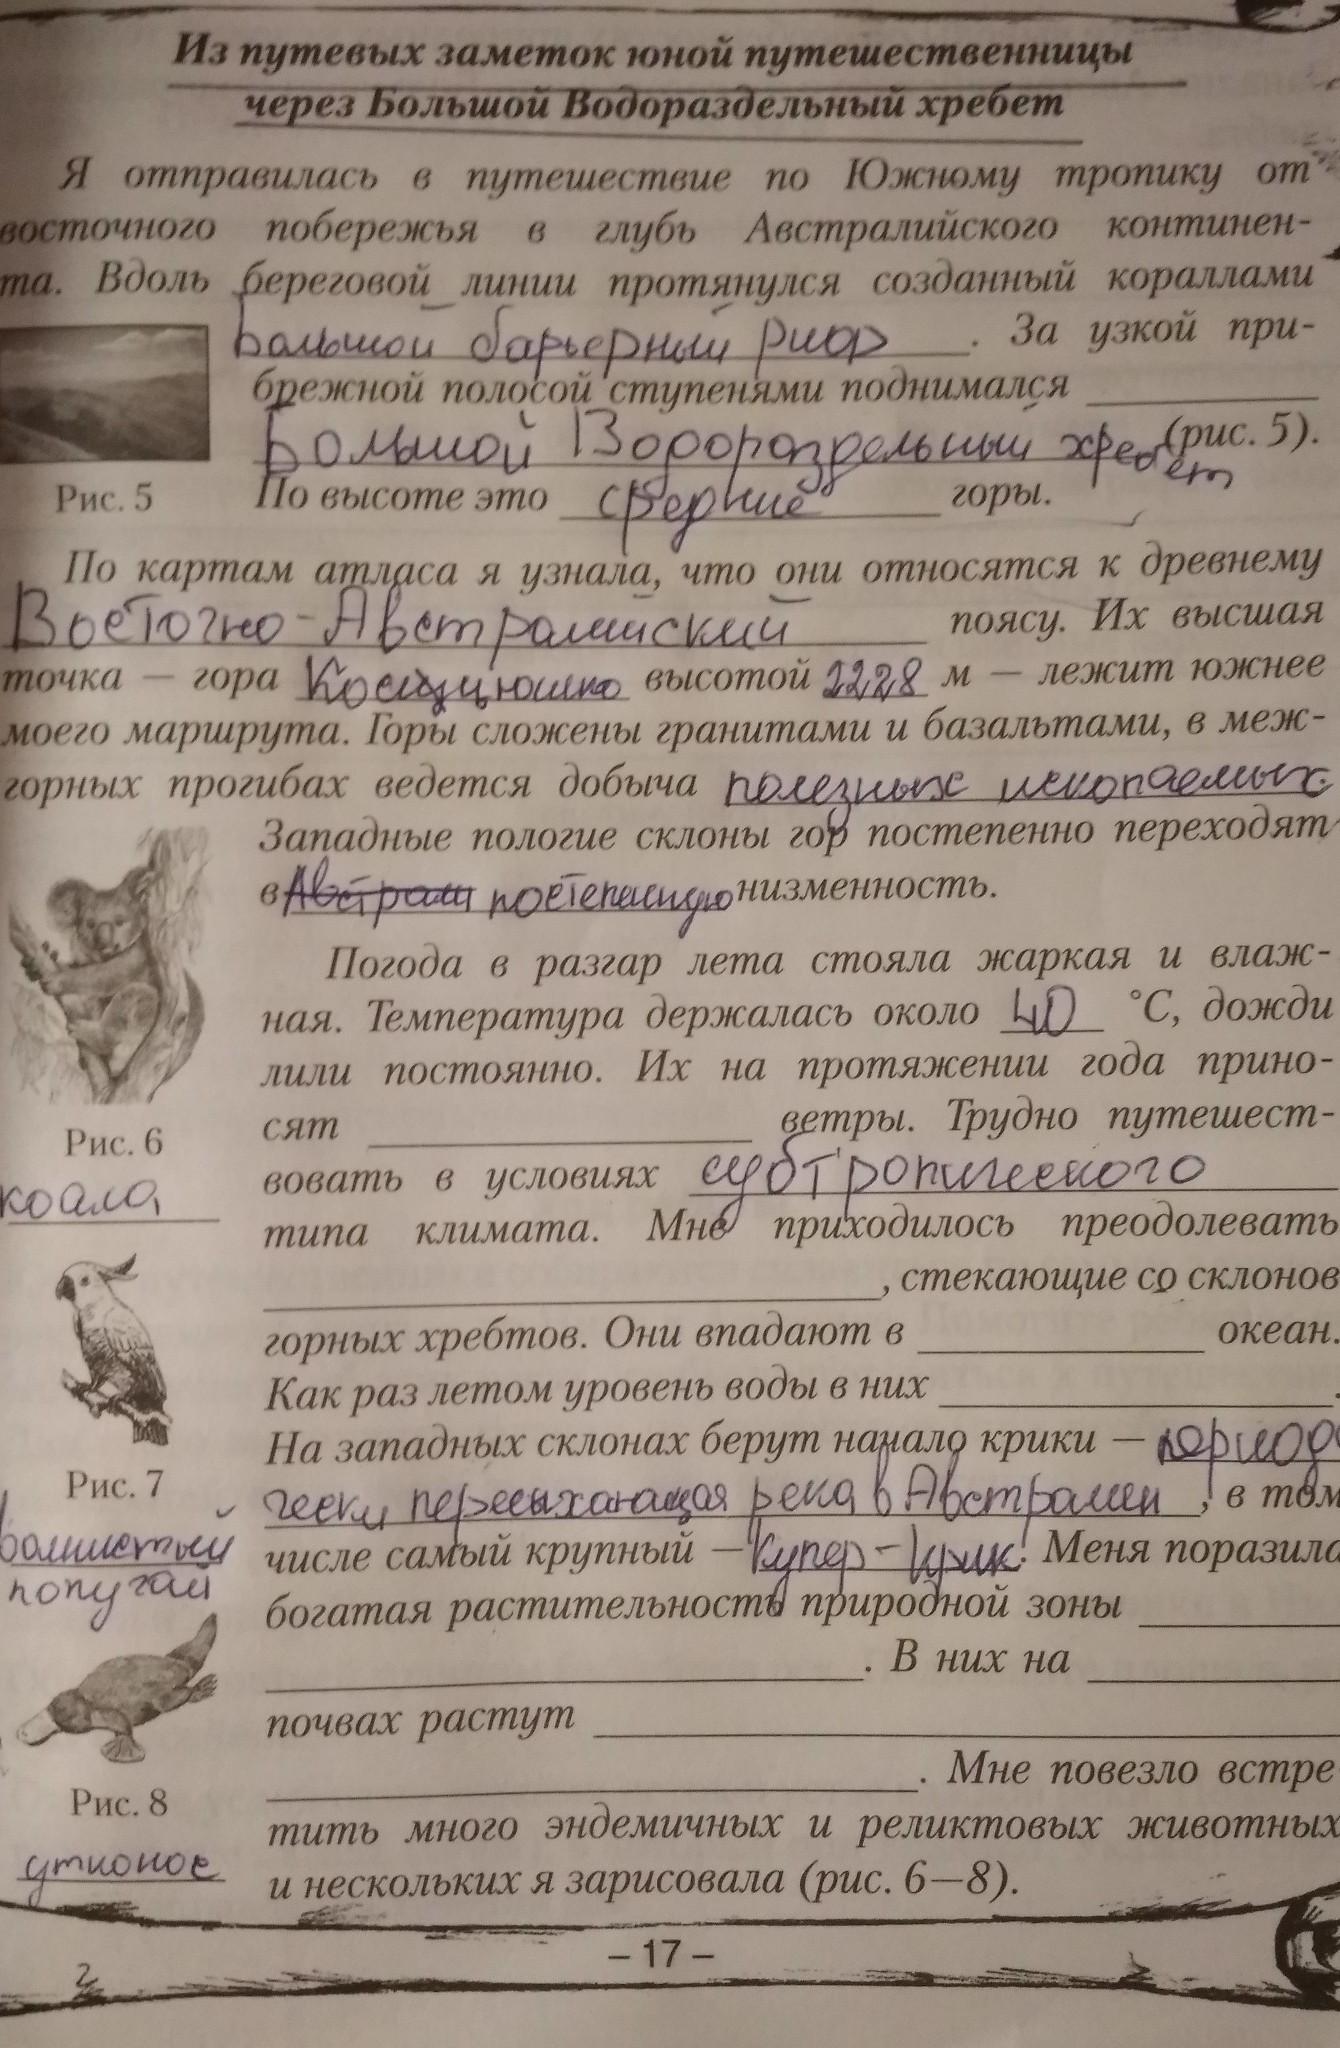 Из путевых заметок юной путешественницы
через Большой Водораздельный хребет
Я отправилась в путешествие по Южному тропику от
восточного побережья в глубь Австралийского континен-
та. Вдоль береговой линии протянулся созданный кораллами
Большой барьерный риф. За узкой при-
брежной полосой ступенями поднимался
Большой Водороздельный хребет (рис. 5).
Рис. 5
По высоте это средние горы.
По картам атласа я узнала, что они относятся к древнему
Восточно-Австралийский поясу. Их высшая
точка — гора Косцюшко высотой 2228 м — лежит южнее
моего маршрута. Горы сложены гранитами и базальтами, в меж-
горных прогибах ведется добыча полезных ископаемых.
Западные пологие склоны гор постепенно переходят
в Австрали постепенную низменность.
Погода в разгар лета стояла жаркая и влаж-
ная. Температура держалась около 40 °С, дожди
лили постоянно. Их на протяжении года прино-
сят ветры. Трудно путешест-
Рис. 6
вовать в условиях субтропического
коала
типа климата. Мне приходилось преодолевать
, стекающие со склонов
горных хребтов. Они впадают в океан.
Как раз летом уровень воды в них .
На западных склонах берут начало крики — периоди
Рис. 7
чески пересыхающая река в Австралии, в том
числе самый крупный — Купер-Крик. Меня поразила
волнистый
попугай
богатая растительность природной зоны
. В них на
почвах растут
. Мне повезло встре
Рис. 8
тить много эндемичных и реликтовых животных
утконос
и нескольких я зарисовала (рис. 6—8).
– 17 –
2